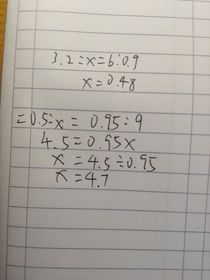 3.2:x=6:0.9
x=0.48
=0.5:x=0.95:9
4.5=0.95x
x=4.5÷0.95
x=4.7